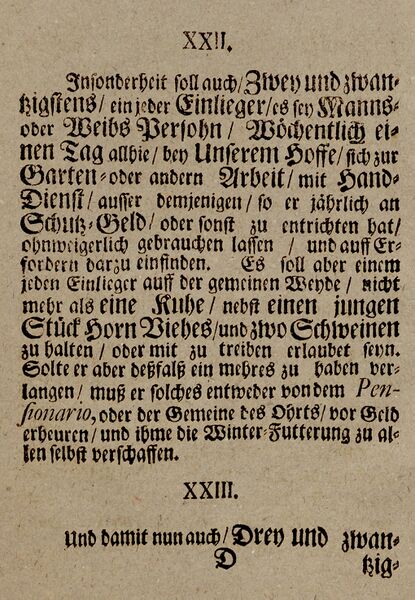 XXII.
Insonderheit soll auch/ Zwey und zwan-
tzigstens/ ein jeder Einlieger/ es sey Manns-
oder Weibs Persohn/ Wöchentlich ei-
nen Tag allhie/ bey Unserem Hoffe/ sich zur
Garten- oder andern Arbeit/ mit Hand-
Dienst/ ausser demjenigen/ so er jährlich an
Schutz-Geld/ oder sonst zu entrichten hat/
ohnweigerlich gebrauchen lassen / und auff Er-
fordern darzu einfinden. Es soll aber einem
jeden Einlieger auff der gemeinen Weyde/ nicht
mehr als eine Kuhe/ nebst einen jungen
Stück Horn Viehes/ und zwo Schweinen
zu halten/ oder mit zu treiben erlaubet seyn.
Solte er aber deßfalß ein mehres zu haben ver-
langen/ muß er solches entweder von dem Pen-
sionario, oder der Gemeine des Ohrts/ vor Geld
erheuren/ und ihme die Winter-Futterung zu al-
len selbst verschaffen.
XXIII.
Und damit nun auch/ Drey und zwan-
D tzig-